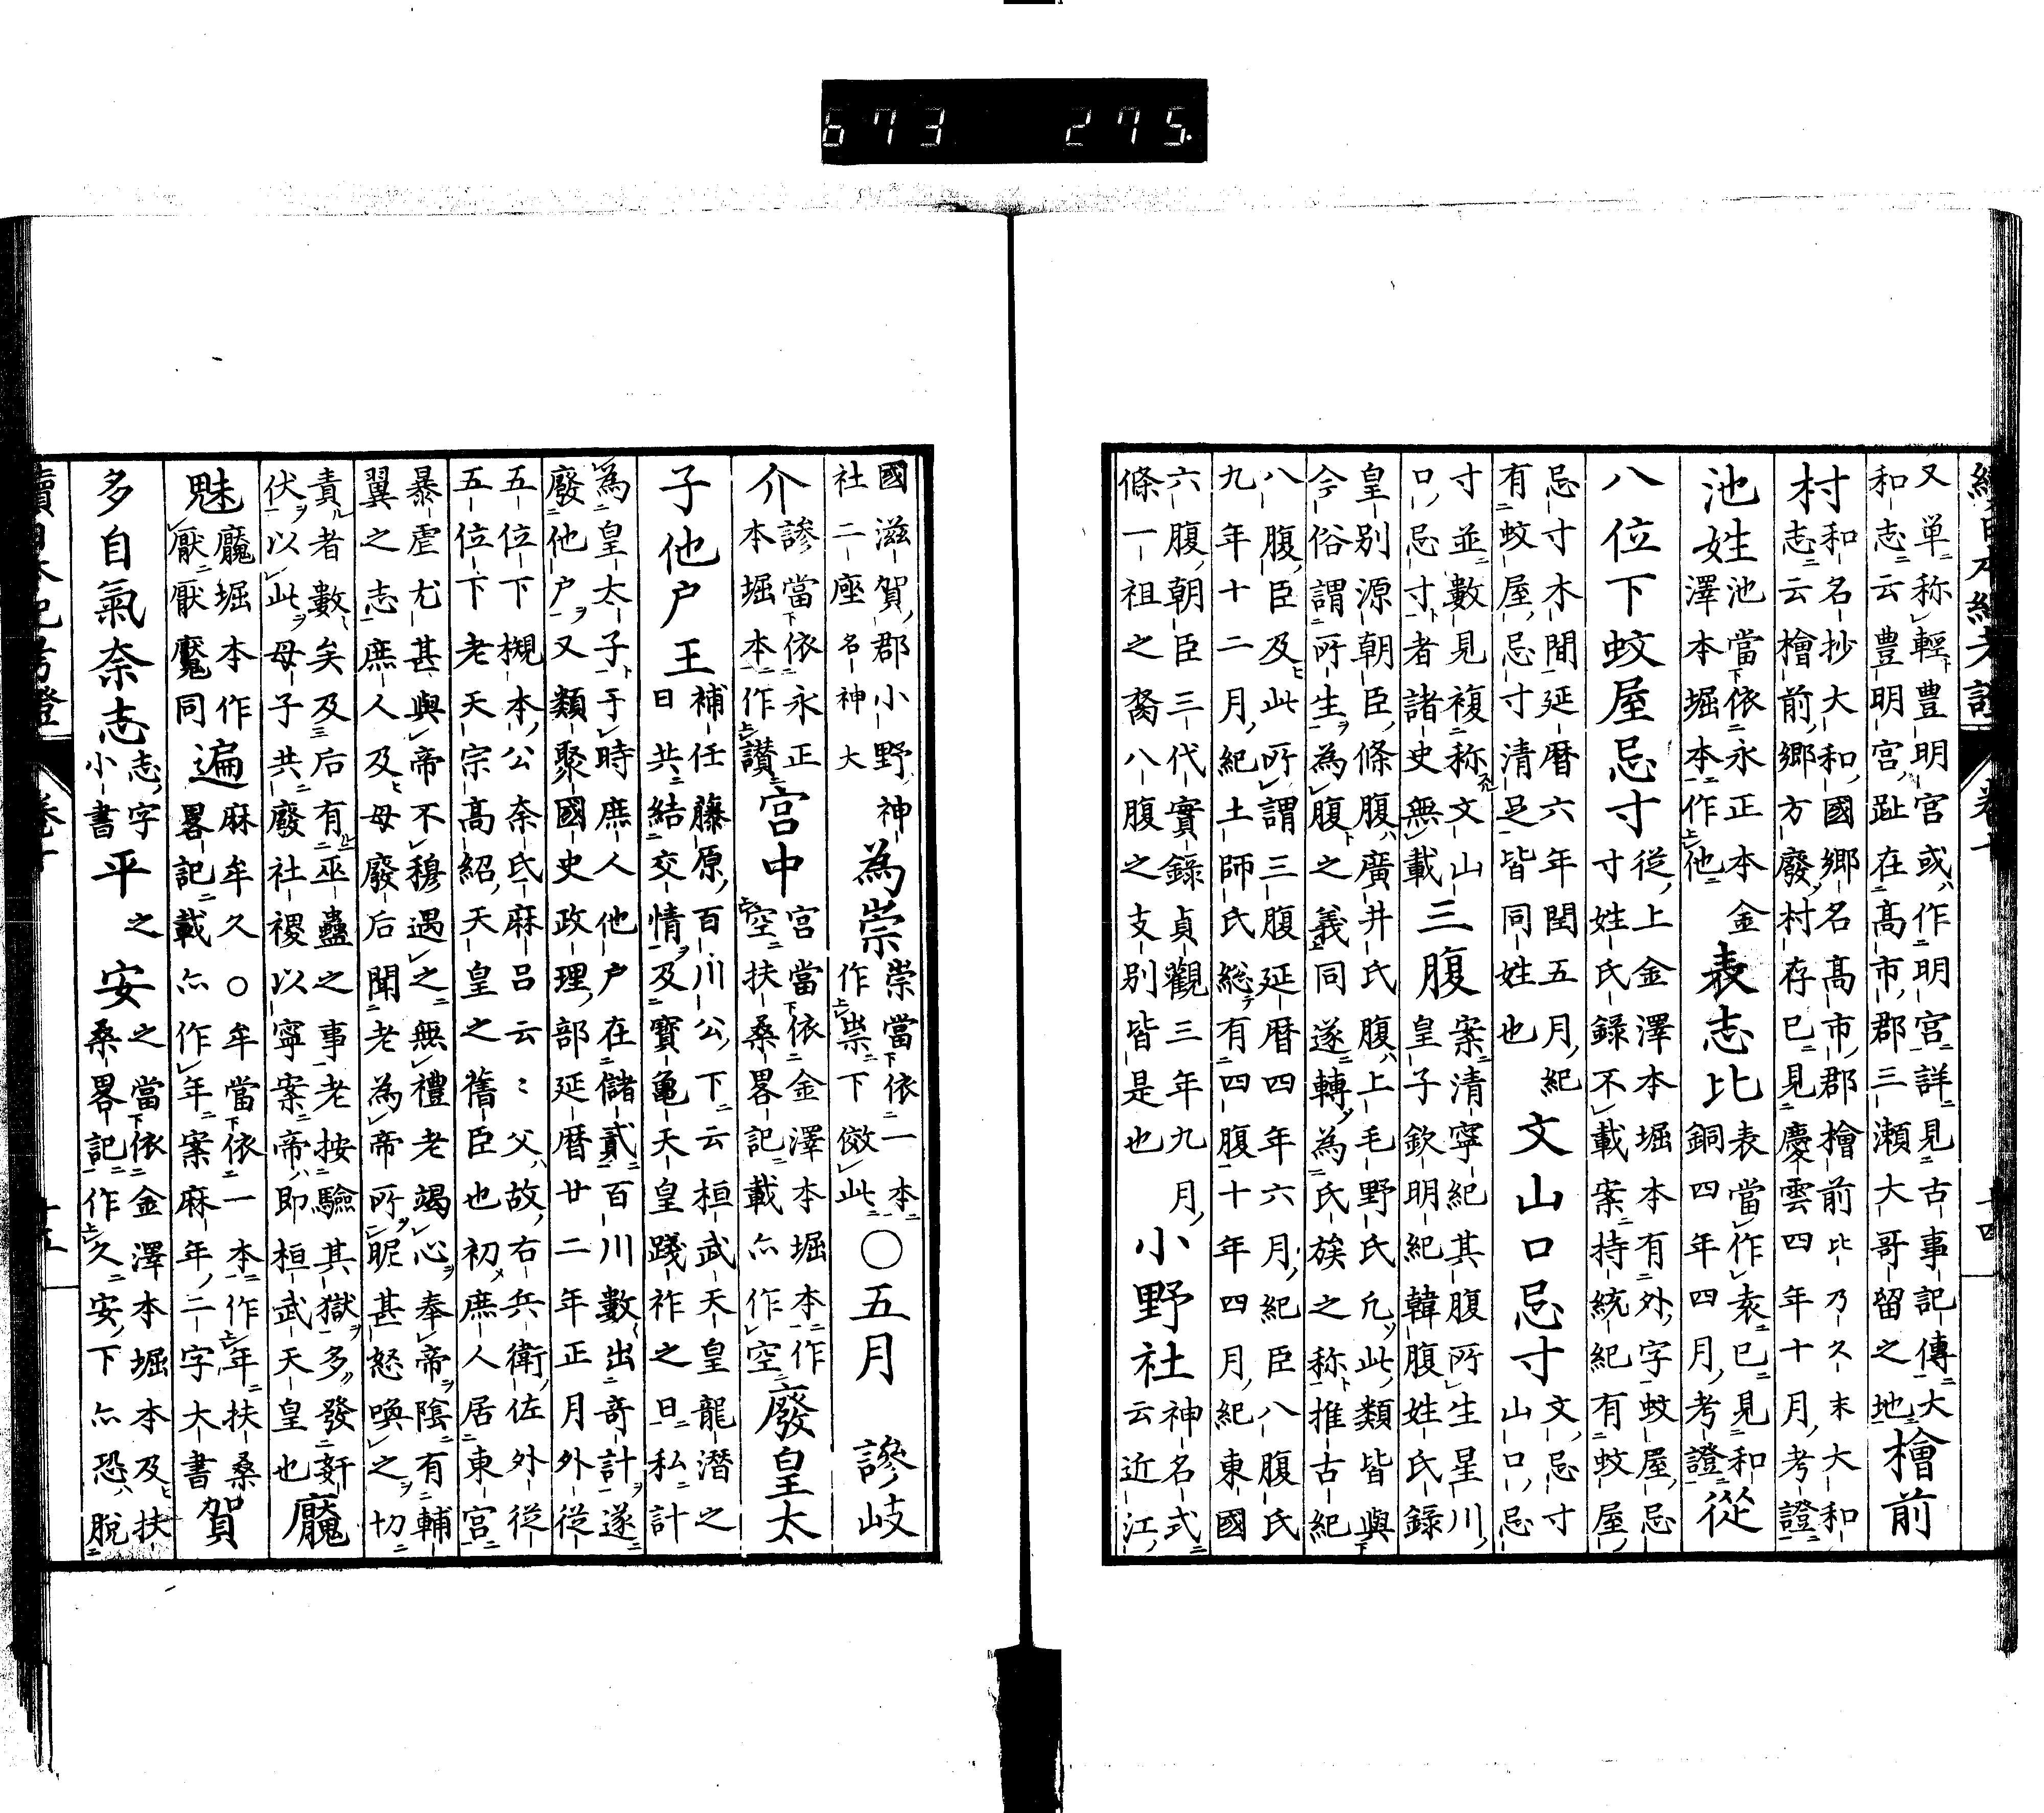 673 275.
又単称輕豊明宮或作明宮詳見古事記傳大
和志云豊明宮趾在髙市郡三瀬大哥留之地檜前
村和名抄大和國郷名髙市郡檜前比乃久末大和
志云檜前郷方廢村存巳見慶雲四年十月考證
池姓池當依永正本金
澤本堀本作他表志比表當作袁巳見和
銅四年四月考證從
八位下蚊屋忌寸從上金澤本堀本有外字蚊屋忌
寸姓氏録不載案持統紀有蚊屋
忌寸木間延暦六年閏五月紀
有蚊屋忌寸清足皆同姓也文山口忌寸文忌寸
山口忌
寸並數見複称文山
口忌寸者諸史無載三腹案清寧紀其腹所生星川
皇子欽明紀韓腹姓氏録
皇別源朝臣條腹廣井氏腹上毛野氏凢此類皆與
今俗謂所生為腹之義同遂轉為氏族之称推古紀
八腹臣及此所謂三腹延暦四年六月紀臣八腹氏
九年十二月紀土師氏総有四腹十年四月紀東國
六腹朝臣三代實録貞觀三年九月
條一祖之裔八腹之支別皆是也小野社神名式
云近江
國滋賀郡小野神
社二座名神大為崇崇當依一本
作祟下傚此〇五月 謲岐
介謲當依永正
本堀本作讃宮中宮當依金澤本堀本作
空扶桑畧記載亦作空廢皇太
子他戸王補任藤原百川公下云桓武天皇龍潛之
日共結交情及寶亀天皇踐祚之日私計
為皇太子于時庶人他戸在儲貳百川數出竒計遂
廢他戸又類聚國史政理部延暦廿二年正月外從
五位下槻本公奈氐麻呂云〻父故右兵衛佐外從
五位下老天宗髙紹天皇之舊臣也初庶人居東宮
暴虐尤甚與帝不穆遇之無禮老竭心奉帝陰有輔
翼之志庶人及母廢后聞老為帝所昵甚怒喚之切
責者數矣及后有巫蠱之事老按驗其獄多發姧
伏以此母子共廢社稷以寧案帝即桓武天皇也魘
魅魘堀本作
厭厭魘同遍麻牟久〇牟當依一本作年扶桑
畧記載亦作年案麻年二字大書賀
多自氣奈志志字
小書平之安之當依金澤本堀本及扶
桑畧記作久安下亦恐脫